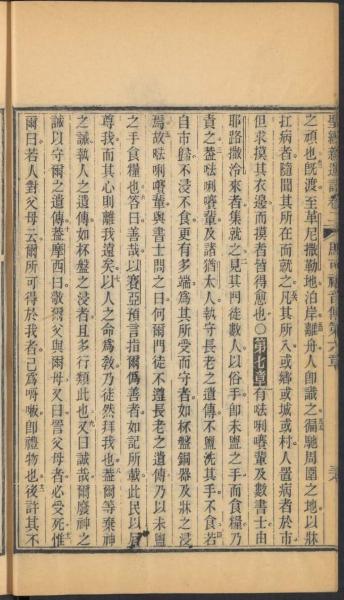 聖經新遺詔卷二 馬可福音傳第六章 三九
之頑也旣渡至革尼撒勒地泊岸離舟人卽識之徧馳周圍之地以牀
扛病者隨聞其所在而就之凡其所入或鄉或城或村人置病者於市
但求摸其衣邊而摸者皆得愈也○第七章有㕸唎㘔輩及數書士由
耶路撒冷來者集就之見其門徒數人以俗手卽未盥之手而食糧乃
責之葢㕸唎㘔輩及諸猶太人執守長老之遺傳不盥洗其手不食若
自市歸不浸不食更有多端爲其所受而守者如杯盤銅器及牀之浸
焉故㕸唎㘔輩與書士問之曰何爾門徒不遵長老之遺傳乃以未盥
之手食糧也答曰善哉以賽亞預言指爾僞善者如記所載此民以唇
尊我而其心則離我遠矣以人之命爲敎乃徒然拜我也葢爾等棄神
之誡執人之遺傳如杯盤之浸者且多行類此也又曰誠哉爾廢神之
誡以守爾之遺傳葢摩西曰敬爾父與爾母又曰詈父母者必受死惟
爾曰若人對父母云爾所可得於我者已爲㗇㘉卽禮物也後許其不